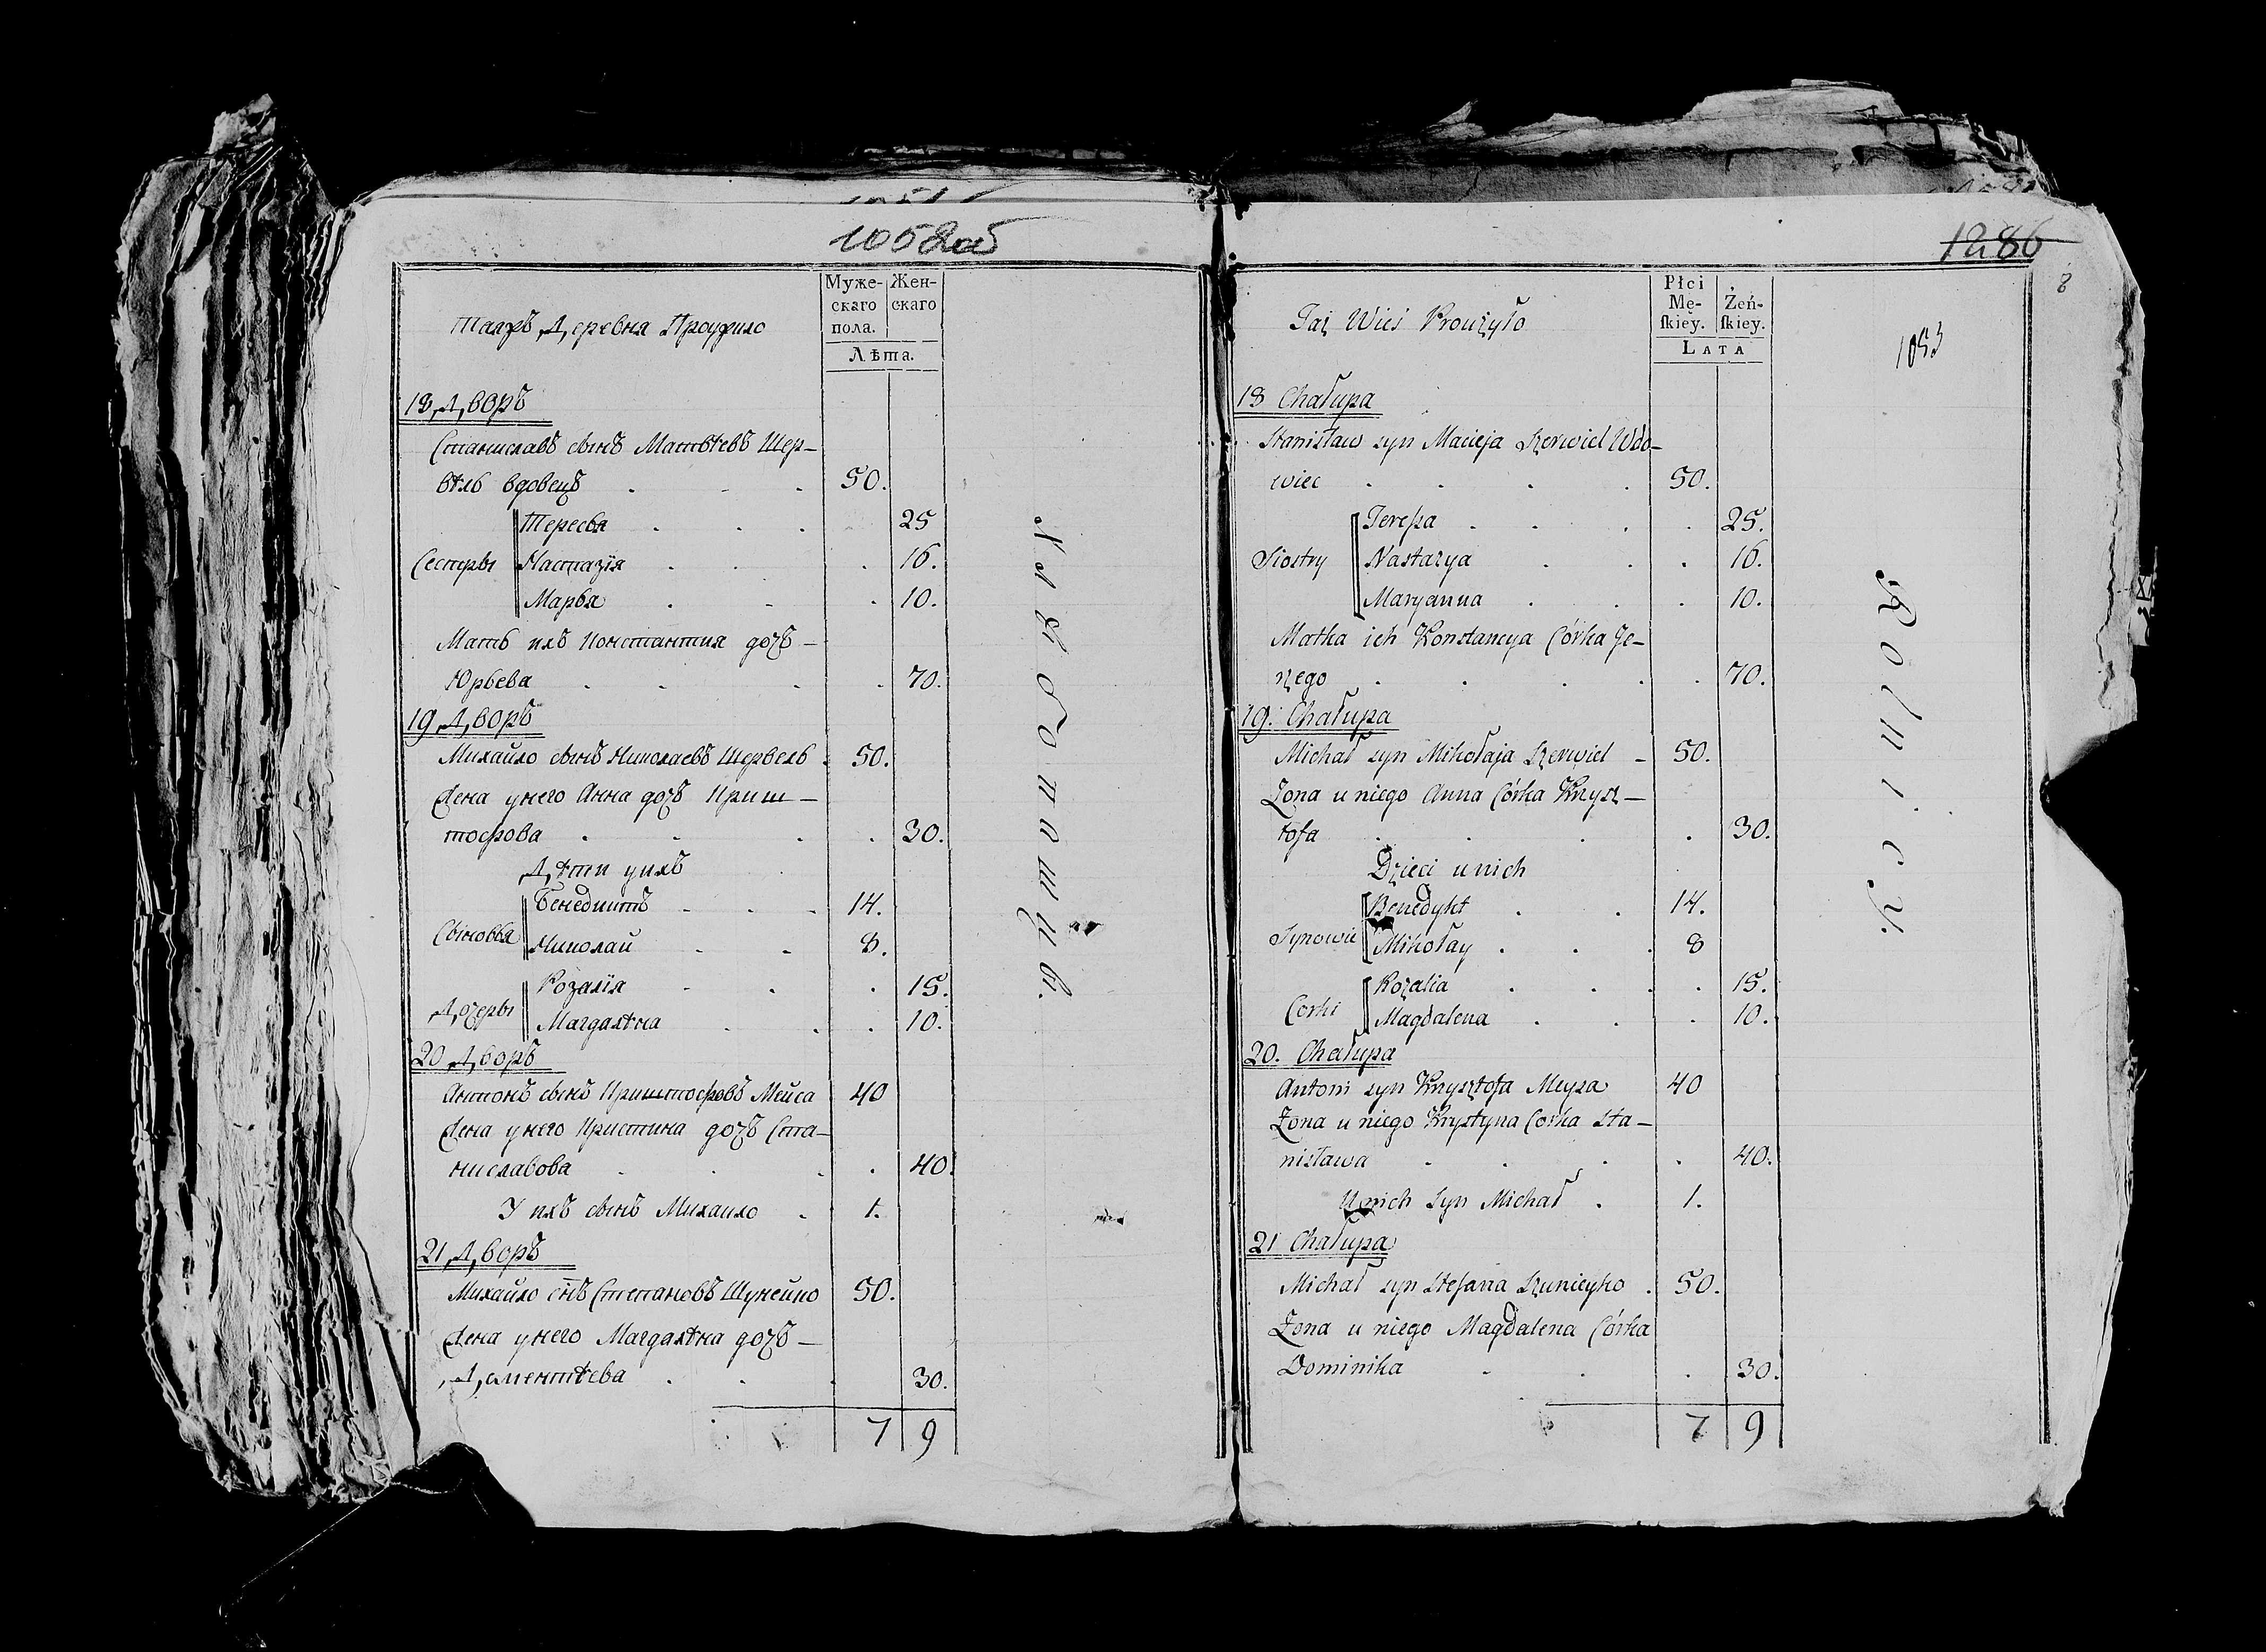 1052об
Таяжъ Деревня Проужило
Муже-
скаго
пола.
Жен-
скаго
Лѣта.
18 Дворъ
Станиславъ сынъ Матвѣевъ Шер-
вѣль вдовецъ . . . 50.
Сестры
Тересья . . . 25
Настазія . . . 16.
Марья . . . 10.
Мать ихъ Константия дочь –
Юрьева . . . . 70.
19 Дворъ
Михайло сынъ Николаевъ Шервель . 50.
Жена унего Анна дочь Криш –
тофова . . . . 30.
Дѣти унхъ
Сыновья
Бенедиктъ . . . 14.
Николай . . 8.
Дочеры
Розалія . . . 15.
Магдалѣна . . . 10.
20 Дворъ
Антонъ сынъ Криштофовъ Мейса 40
Жена унего Кристина дочь Ста –
ниславова . . . . 40.
У ихъ сынъ Михайло . 1.
21 Дворъ
Михайло снъ Степановъ Шунейко 50.
Жена унего Магдалѣна дочь –
Дементѣева . . . 30.
7 9
1286
8
1053
Taż Wieś Proużyło
Płci
Mę-
ſkiey.
Żeń-
ſkiey.
LATA
18 Chałupa
Stanisław syn Macieja Szerwiel Wdo-
wiec . . . . 50.
Siostry
Tereſsa . . . . 25.
Nastazya . . . 16.
Maryanna . . . 10.
Matka ich Konstancya Córka Je-
rzego . . . . . 70.
19. Chałupa
Michał syn Mikołaja Szerwiel – 50.
Żona u niego Anna Córka Krzysz –
tofa . . . . 30.
Dzieci unich
Synowie
Benedykt . . 14.
Mikołay . . . 8
Corki
Rozalia . . . . 15.
Magdalena . . . 10.
20. Chałupa
Antoni syn Krzysztofa Meysa 40
Żona u niego Krystyna Corka Sta –
nisława . . . . 40.
U nich Syn Michał . 1.
21 Chałupa
Michał syn Stefana Szunieyko . 50.
Żona u niego Magdalena Córka
Dominika . . . 30.
7 9